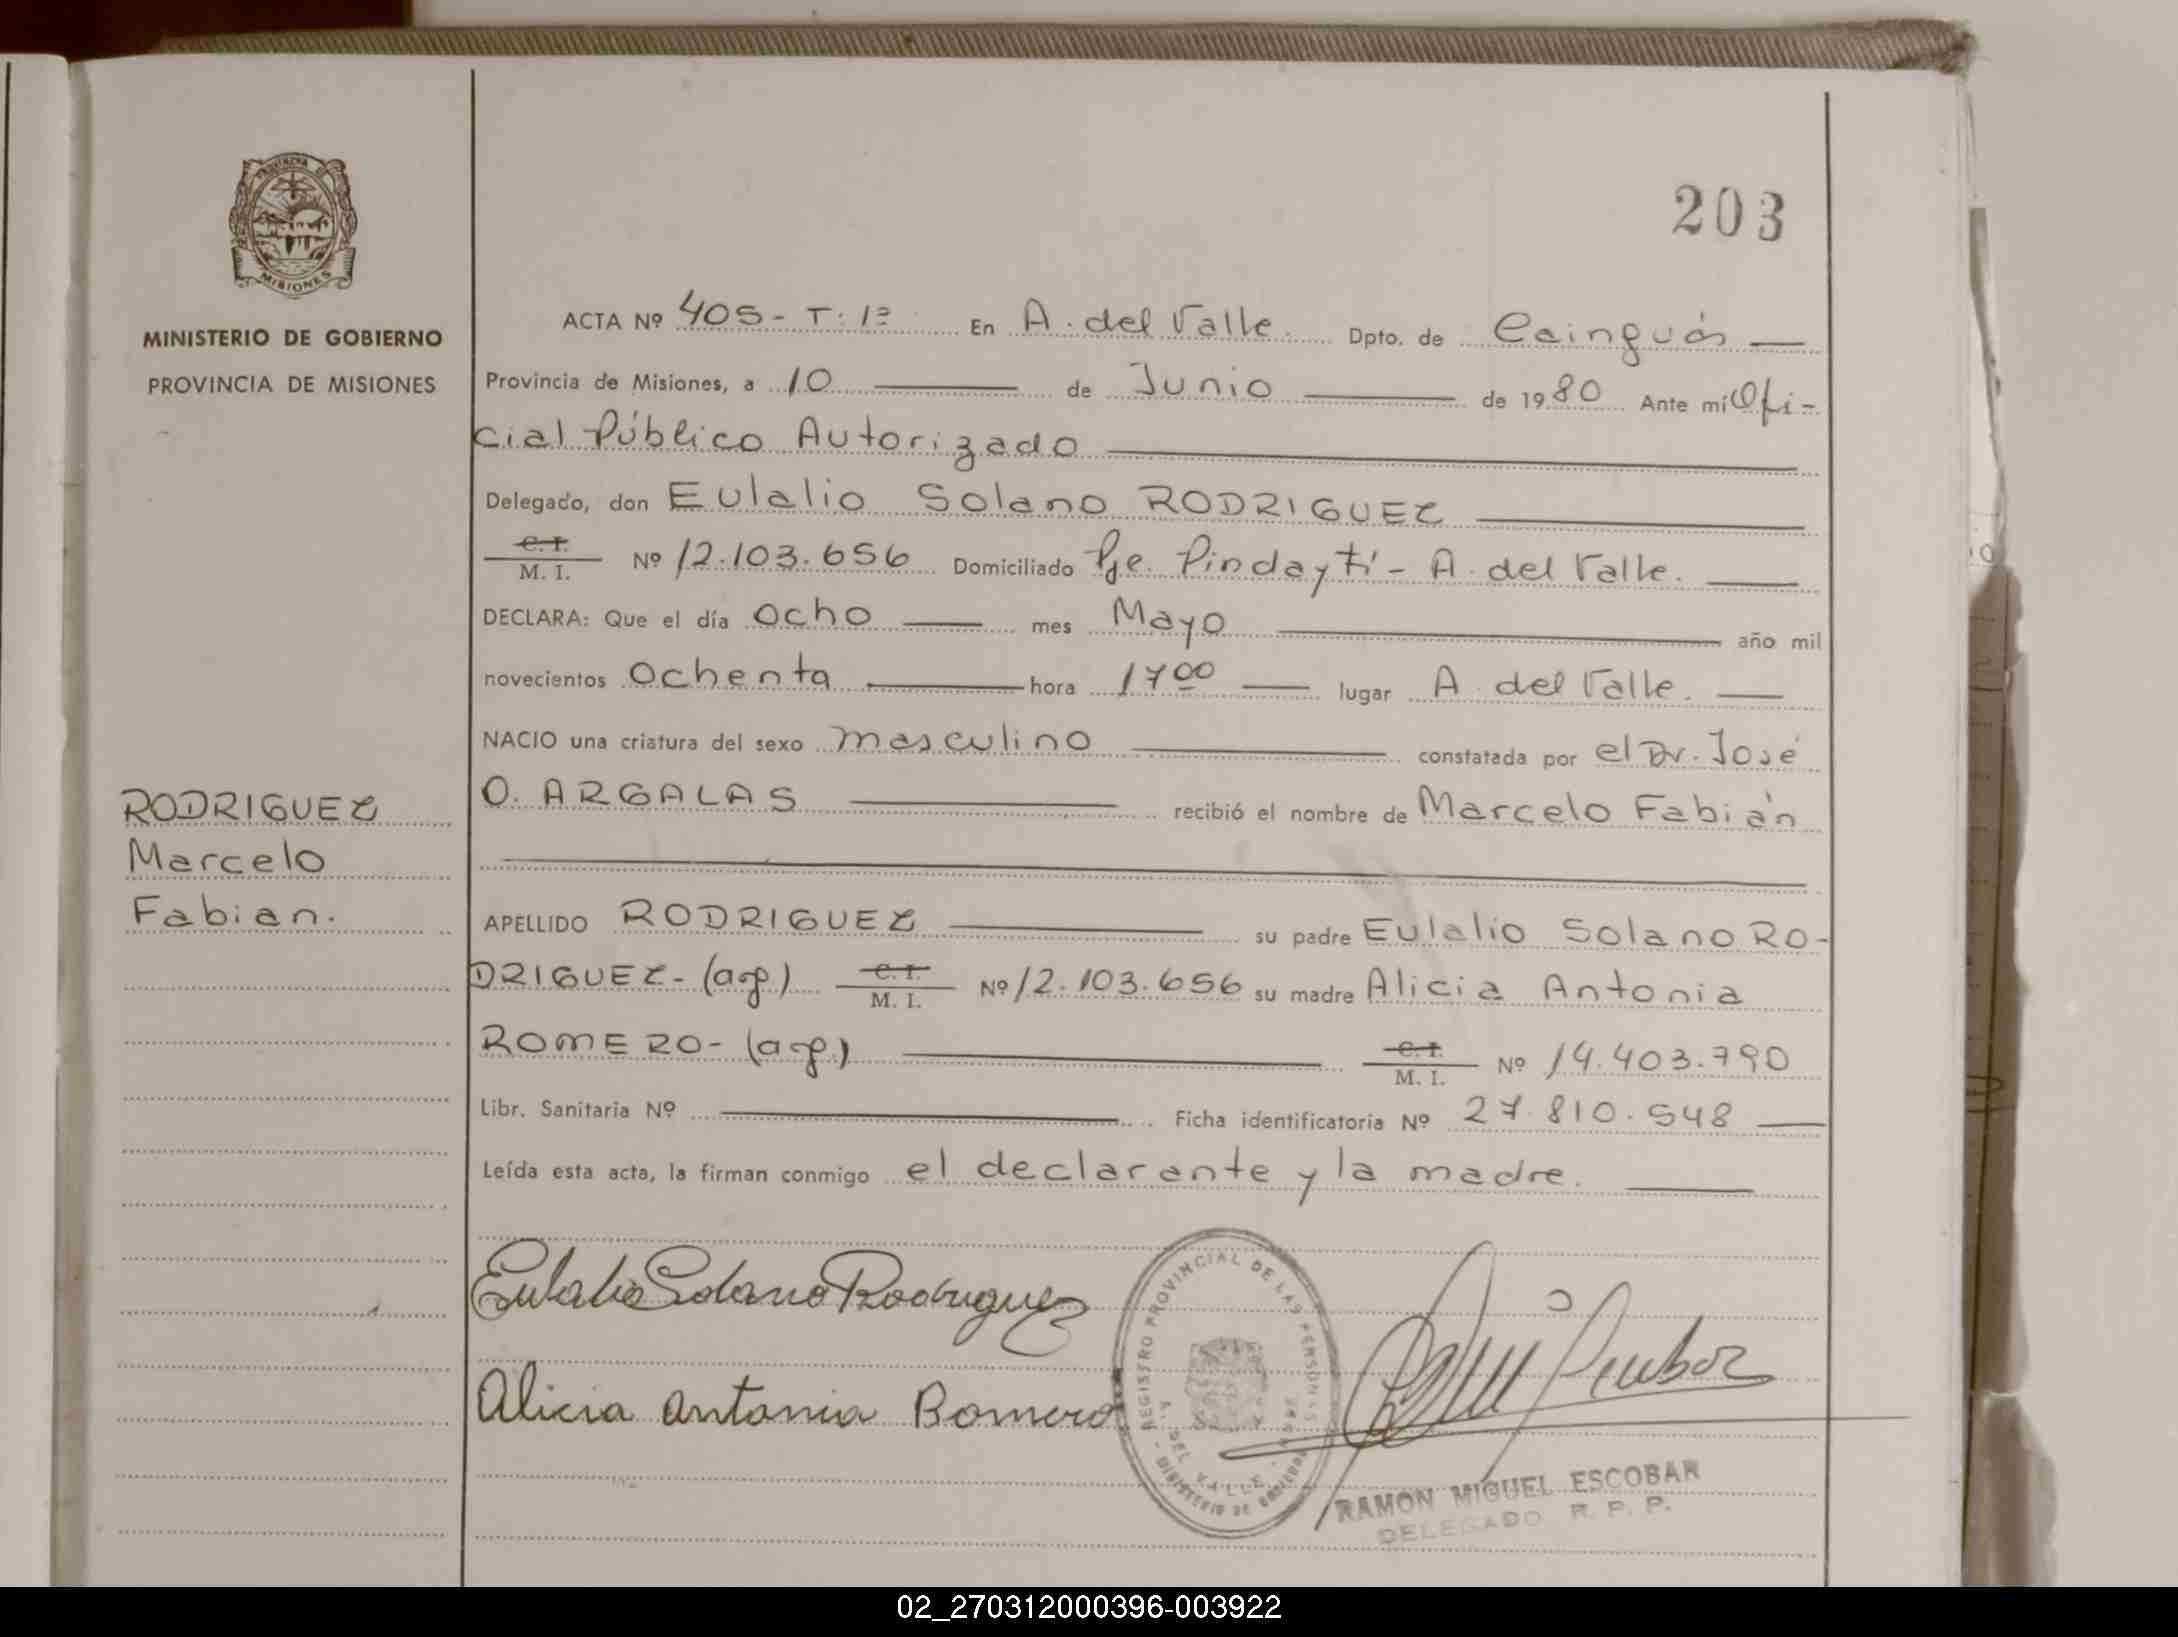 203
PROVINCIA DE
MISIONES
MINISTERIO DE GOBIERNO
PROVINCIA DE MISIONES
RODRIGUEZ
Marcelo
Fabian.
ACTA Nº 405- T: 1º En A. del Valle. Dpto. de Cainguás
Provincia de Misiones, a 10 de Junio de 1980 Ante mí Ofi-
cial Público Autorizado
Delegado, don Eulalio Solano RODRIGUEZ
C. I. M. I. Nº 12.103.656 Domiciliado Pje. Pindaytí - A. del Valle.
DECLARA: Que el día ocho mes Mayo año mil
novecientos ochenta hora 17 00 lugar A. del Valle.
NACIO una criatura del sexo masculino constatada por el Dr. José
O. ARGALAS recibió el nombre de Marcelo Fabián
APELLIDO RODRIGUEZ su padre Eulalio Solano RO-
DRIGUEZ- (arg) C. I. M. I. Nº 12.103.656 su madre Alicia Antonia
ROMERO- (arg) C. I. M. I. Nº 14.403.790
Libr. Sanitaria Nº Ficha identificatoria Nº 27.810.548
Leída esta acta, la firman conmigo el declarante y la madre.
Eulalio Solano Rodriguez
Alicia Antonia Romero
REGISTRO PROVINCIAL DE LAS PERSONAS
A. DEL VALLE
MINISTERIO DE GOBIERNO
RAMON MIGUEL ESCOBAR
DELEGADO R. P. P.
02_270312000396-003922